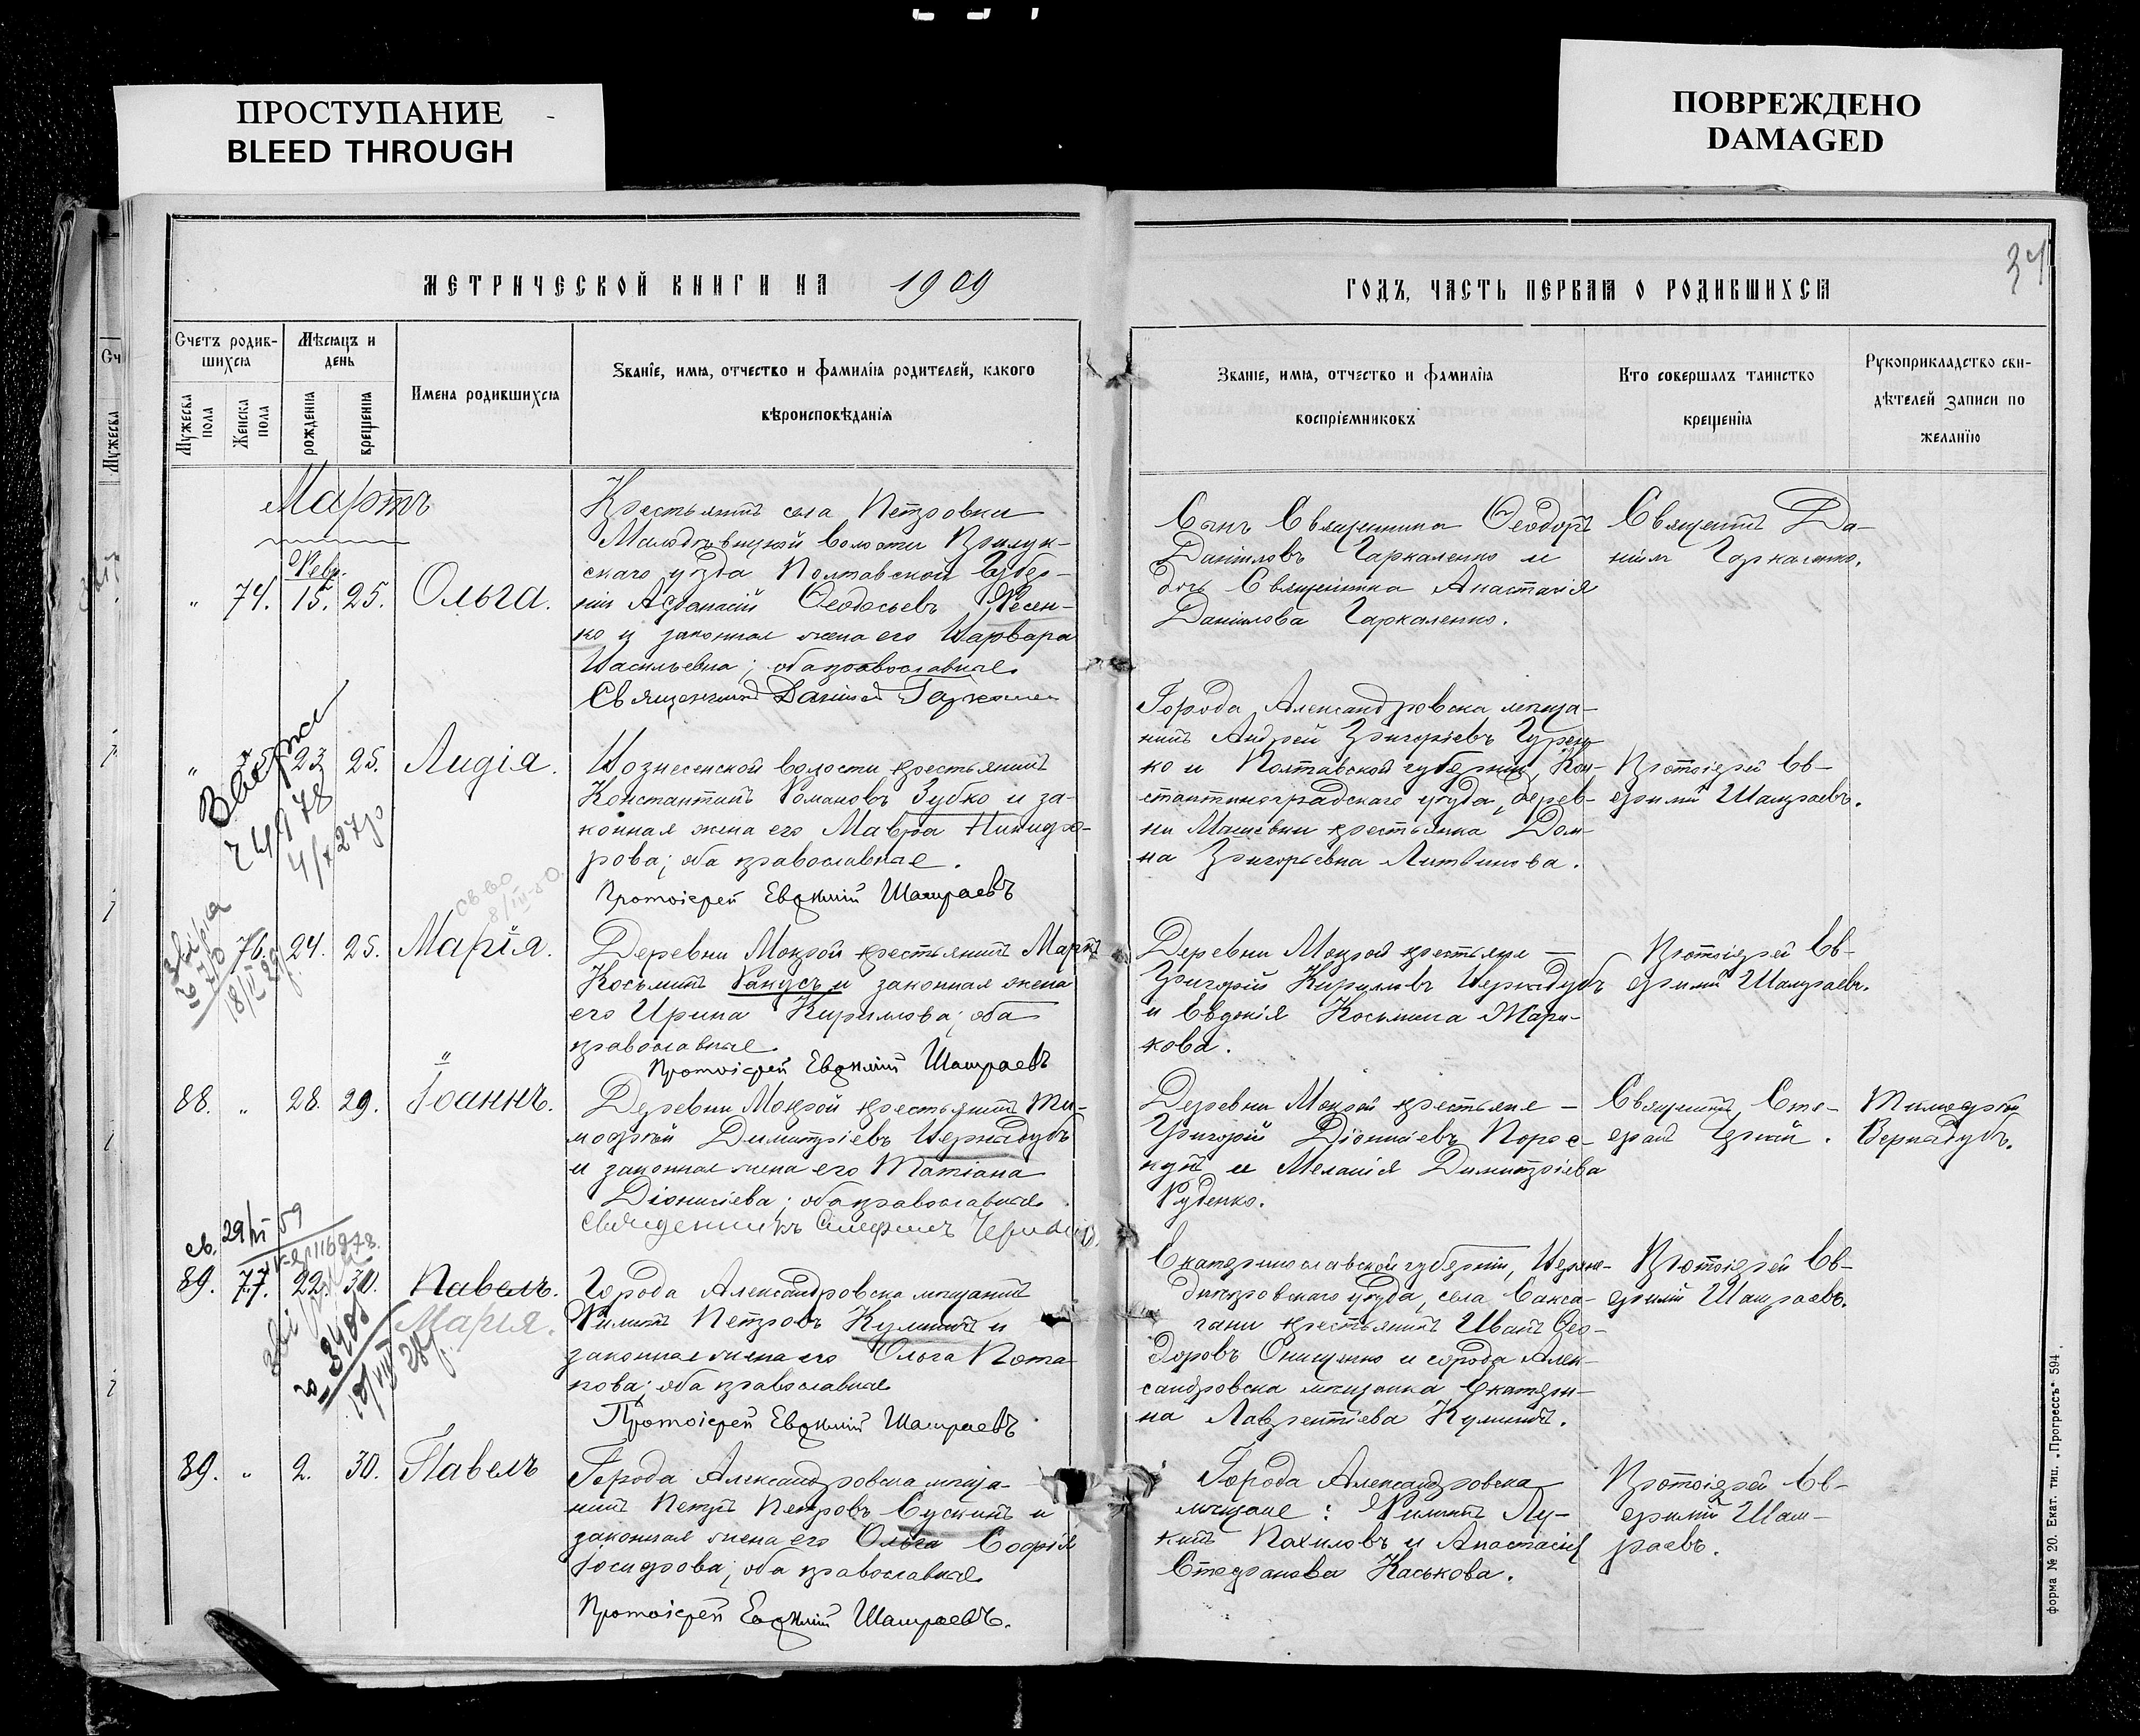 ПРОСТУПАНИЕ
BLEED THROUGH
ПОВРЕЖДЕНО
DAMAGED
34
МЕТРИЧЕСКОЙ КНИГИ НА 1909
ГОДЪ, ЧАСТЬ ПЕРВАЯ О РОДИВШИХСЯ
Счетъ родив-
шихся
Мужеска пола
Женска пола
Мѣсяцъ и день
рожденія
крещенія
Имена родившихся
Званіе, имя, отчество и фамилія родителей, какого
вѣроисповѣданія
Званіе, имя, отчество и фамилія
воспріемниковъ
Кто совершалъ таинство
крещенія
Рукоприкладство сви-
дѣтелей записи по
желанію
Мартъ
" 74. Февр. 15. 25. Ольга.
Крестьянинъ села Петровки
волости Прилук-
скаго уѣзда Полтавской Губер-
ніи Афанасій Ѳеодосьевъ Фесен-
ко и законная жена его Варвара
Васильевна; оба православные.
Священникъ Даніилъ
Сынъ Священника Ѳеодоръ
Даніиловъ Гаркаленко и
дочь Священника Анастасія
Даніилова Гаркаленко.
Священникъ Да-
ніилъ Гаркаленко.
" 23 25. Лидія.
Вознесенской волости крестьянинъ
Константинъ Романовъ Зубко и за-
конная жена его Мавра Никифо-
рова; оба православные.
Протоіерей Евфимій Шамраевъ
Города Александровска мѣща-
нинъ Андрей Григорьевъ Гурен-
ко и Полтавской губерніи, Кон-
стантиноградскаго уѣзда, дерев-
ни крестьянка Дом-
на Григорьевна Литвинова.
Протоіерей Ев-
фимій Шамраевъ.
76. 24. 25. Марія.
Деревни Мокрой крестьянинъ Маркъ
Косьминъ и законная жена
его Ирина Кирилова; оба
православные
Протоіерей Евфимій Шамраевъ
Деревни Мокрой крестьяне —
Григорій Кириловъ Вернидубъ
и Евдокія Косьмина Мари-
кова.
Протоіерей Ев-
фимій Шамраевъ.
88. " 28. 29. Іоаннъ.
Деревни Мокрой крестьянинъ Ти-
мофей Димитріевъ Вернидубъ
и законная жена его Татіана
Діонисіева; оба православные.
Священникъ Стефанъ
Деревни Мокрой крестьяне —
Григорій Діонисіевъ
и Меланія Димитріева
Руденко.
Священникъ Сте-
фанъ
Тимофей
Вернидубъ.
св. 29/VI 59
89. 77. 22. 30. Павелъ.
Марія.
Города Александровска мѣщанинъ
Филиппъ Петровъ и
законная жена его Ольга Пота-
пова; оба православные
Протоіерей Евфимій Шамраевъ.
Екатеринославской губерніи, Верхне-
днѣпровскаго уѣзда, села Сакса-
гани крестьянинъ Иванъ Ѳео-
доровъ Онищенко и города Алек-
сандровска мѣщанка Екатери-
на Лаврентіева
Протоіерей Ев-
фимій Шамраевъ.
89. " 2. 30. Павелъ
Города Александровска мѣща-
нинъ Петръ Петровъ Сускинъ и
законная жена его Ольга Софія
Іосифова; оба православные.
Протоіерей Евфимій Шамраевъ.
Города Александровска
мѣщане: Филиппъ Лу-
кинъ Пахиловъ и Анастасія
Стефанова Каськова.
Протоіерей Ев-
фимій Шам-
раевъ.
форма № 20. Екат. тип. „Прогрессъ" 594.